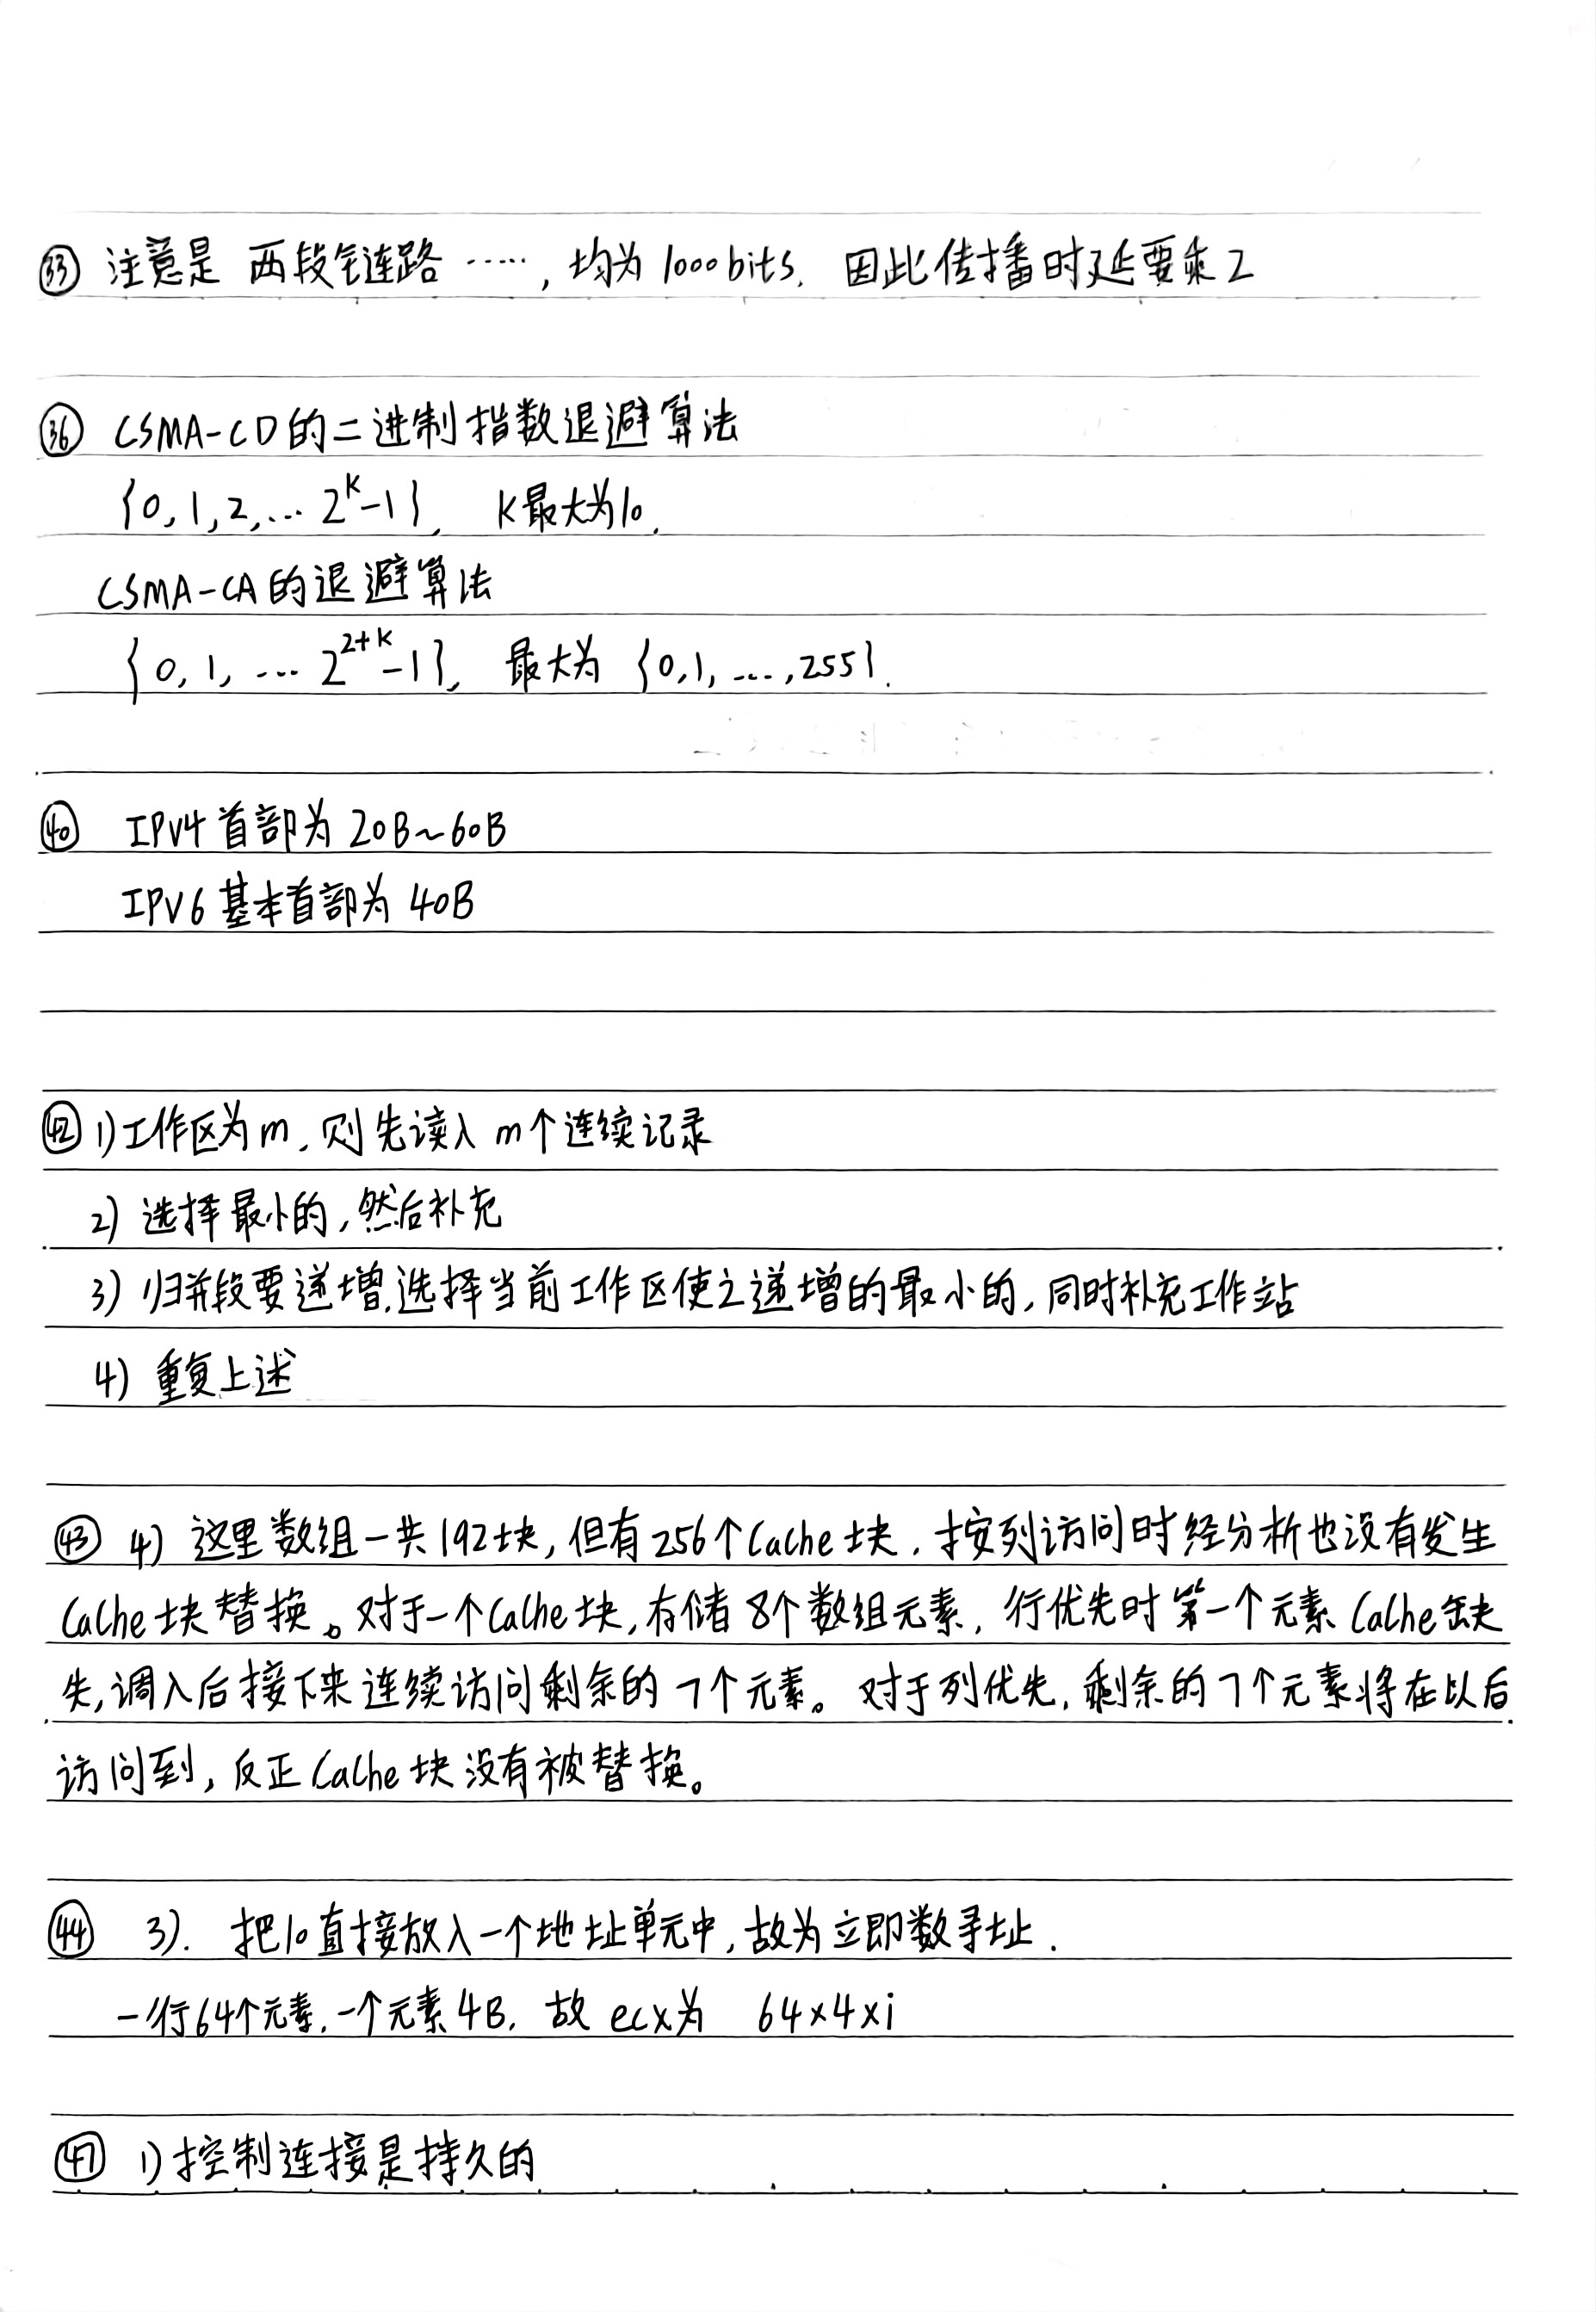 ㉝ 注意是 两段链路 ……, 均为 1000bits. 因此传播时延要乘2
㊱ CSMA-CD的二进制指数退避算法
{0, 1, 2, … 2^k-1}, k最大为10.
CSMA-CA的退避算法
{0, 1, … 2^{2+k}-1}, 最大为 {0,1, …, 255}.
㊵ IPV4首部为 20B~60B
IPV6基本首部为 40B
㊷ 1)工作区为m, 则先读入 m个连续记录
2) 选择最小的, 然后补充
3) 归并段要递增,选择当前工作区使之递增的最小的, 同时补充工作站
4) 重复上述
㊸ 4) 这里数组一共192块, 但有256个Cache块. 按列访问时经分析也没有发生
Cache块替换。对于一个Cache块, 存储 8个数组元素, 行优先时第一个元素Cache缺
失, 调入后接下来连续访问剩余的7个元素。对于列优先, 剩余的7个元素将在以后
访问到, 反正Cache块没有被替换。
㊹ 3). 把10直接放入一个地址单元中, 故为立即数寻址.
一行64个元素, 一个元素4B. 故 ecx为 64×4×i
㊼ 1)控制连接是持久的